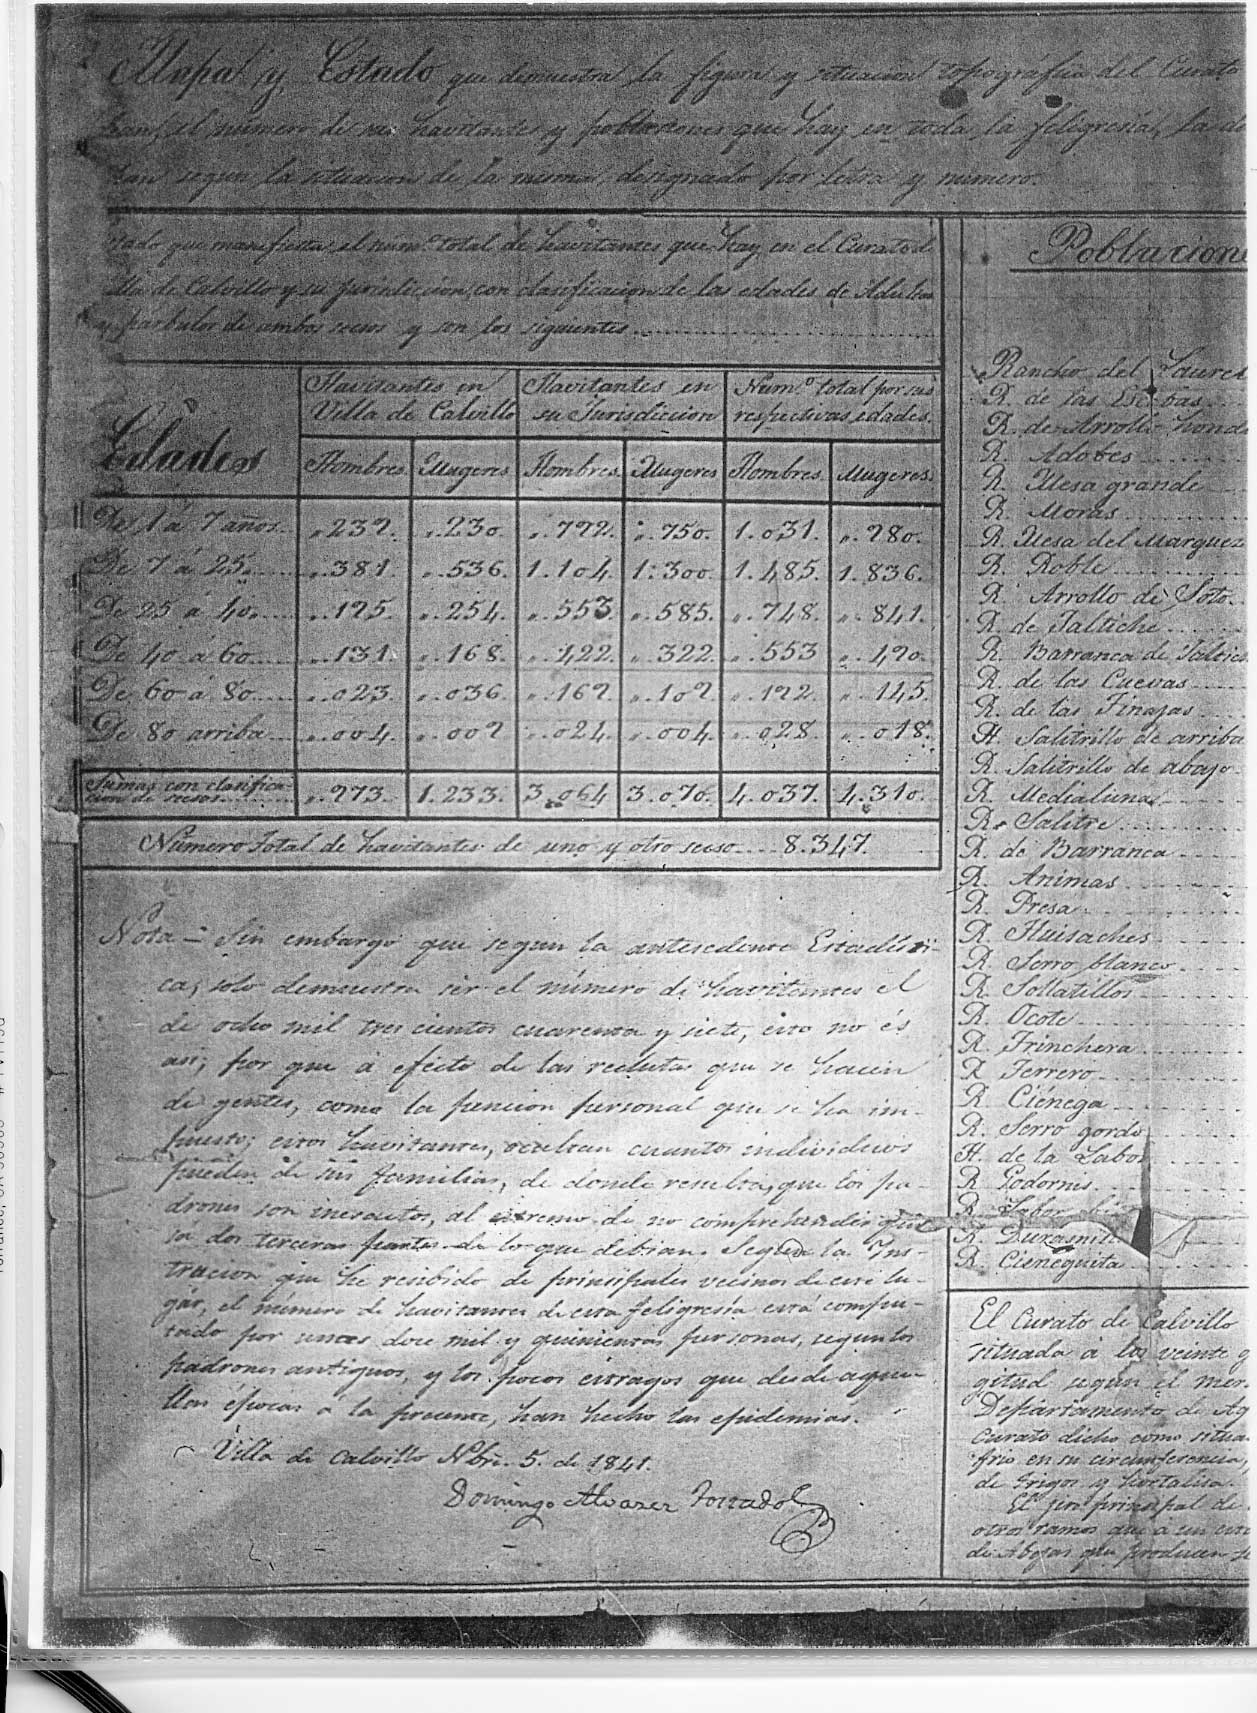 Mapa y Estado que demuestra la figura y situacion topográfia del Curato
el número de sus havitantes y poblaciones que hay en toda la feligresía, la
segun la situacion de la misma, designado por letra y número.
que manifiesta el num.º total de havitantes que hay en el Curato d
de Calvillo y su jurisdiccion, con clasificacion de las edades de Adultos
y parbulos de ambos secsos y son los siguientes
Edades
Havitantes en Villa de Calvillo
Havitantes en su Jurisdiccion
Num.º total por sus respectivas edades.
Hombres. Mugeres Hombres. Mugeres Hombres. Mugeres.
De 1 á 7 años. „ 239. „ 230. „ 792. „ 750. 1.031. „ 980.
De 7 á 25. „ 381. „ 536. 1.104. 1.300. 1.485. 1.836.
De 25 á 40. „ 195. „ 254. „ 553. „ 585. „ 748. „ 841.
De 40 á 60. „ 131. „ 168. „ 422. „ 322. „ 553 „ 490.
De 60 á 80. „ 023. „ 036. „ 169. „ 109 „ 192. „ 145.
De 80 arriba „ 004. „ 009 „ 024. „ 004. „ 028. „ 018.
Sumas con clasifica-
cion de secsos „ 973. 1.233. 3.064 3.070. 4.037. 4.310.
Número total de havitantes de uno y otro secso 8.347.
Nota - Sin embargo que segun la antesedente Estadísti-
ca, solo demuestra ser el número de havitantes el
de ocho mil tres cientos cuarenta y siete, esto no és
asi; por que á efecto de las reclutas que se hacen
de gentes, como la pencion personal que se ha im-
puesto; estos havitantes, ocultan cuantos individuos
pueden de sus familias, de donde resulta, que los pa-
drones son inesactos, al estremo de no comprehender qui-
sá dos terceras partes de lo que debian. Segun la Ins-
tracion que he resibido de prinsipales vecinos de este lu-
gár, el número de havitantes de esta feligresía está compu-
tado por unas doce mil y quinientas personas, segun los
padrones antiguos, y los pocos estragos que desde aque-
llas épocas á la presente, han hecho las epidemias.
Villa de Calvillo Nbre. 5. de 1841.
Domingo Alvarez Tostado
Poblacione
Rancho del Laurel
R. de las Escobas
R. de Arrollo hondo
R. Adobes
R. Mesa grande
R. Moras
R. Mesa del Marquez
R. Roble
R. Arrollo de Soto
R. de Taltiche
R. Barranca de Taltich
R. de las Cuevas
R. de las Tinajas
H. Salitrillo de arriba
R. Salitrillo de abajo
R. Medialuna
R. Salitre
R. de Barranca
R. Animas
R. Presa
R. Huisaches
R. Serro blanco
R. Tollatillos
R. Ocote
R. Trinchera
R. Terrero
R. Ciénega
R. Serro gordo
H. de la Labor
R. Godornes
R. Labor
R. Durasnill
R. Cieneguita
El Curato de Calvillo
situada á los veinte g
gitud segun el mer
Departamento de Ag
curato dicho como situa
frio en su circunferencia,
de trigos y hortalisa.
El prinsipal de
otros ramos que á un
de Abejas que producen